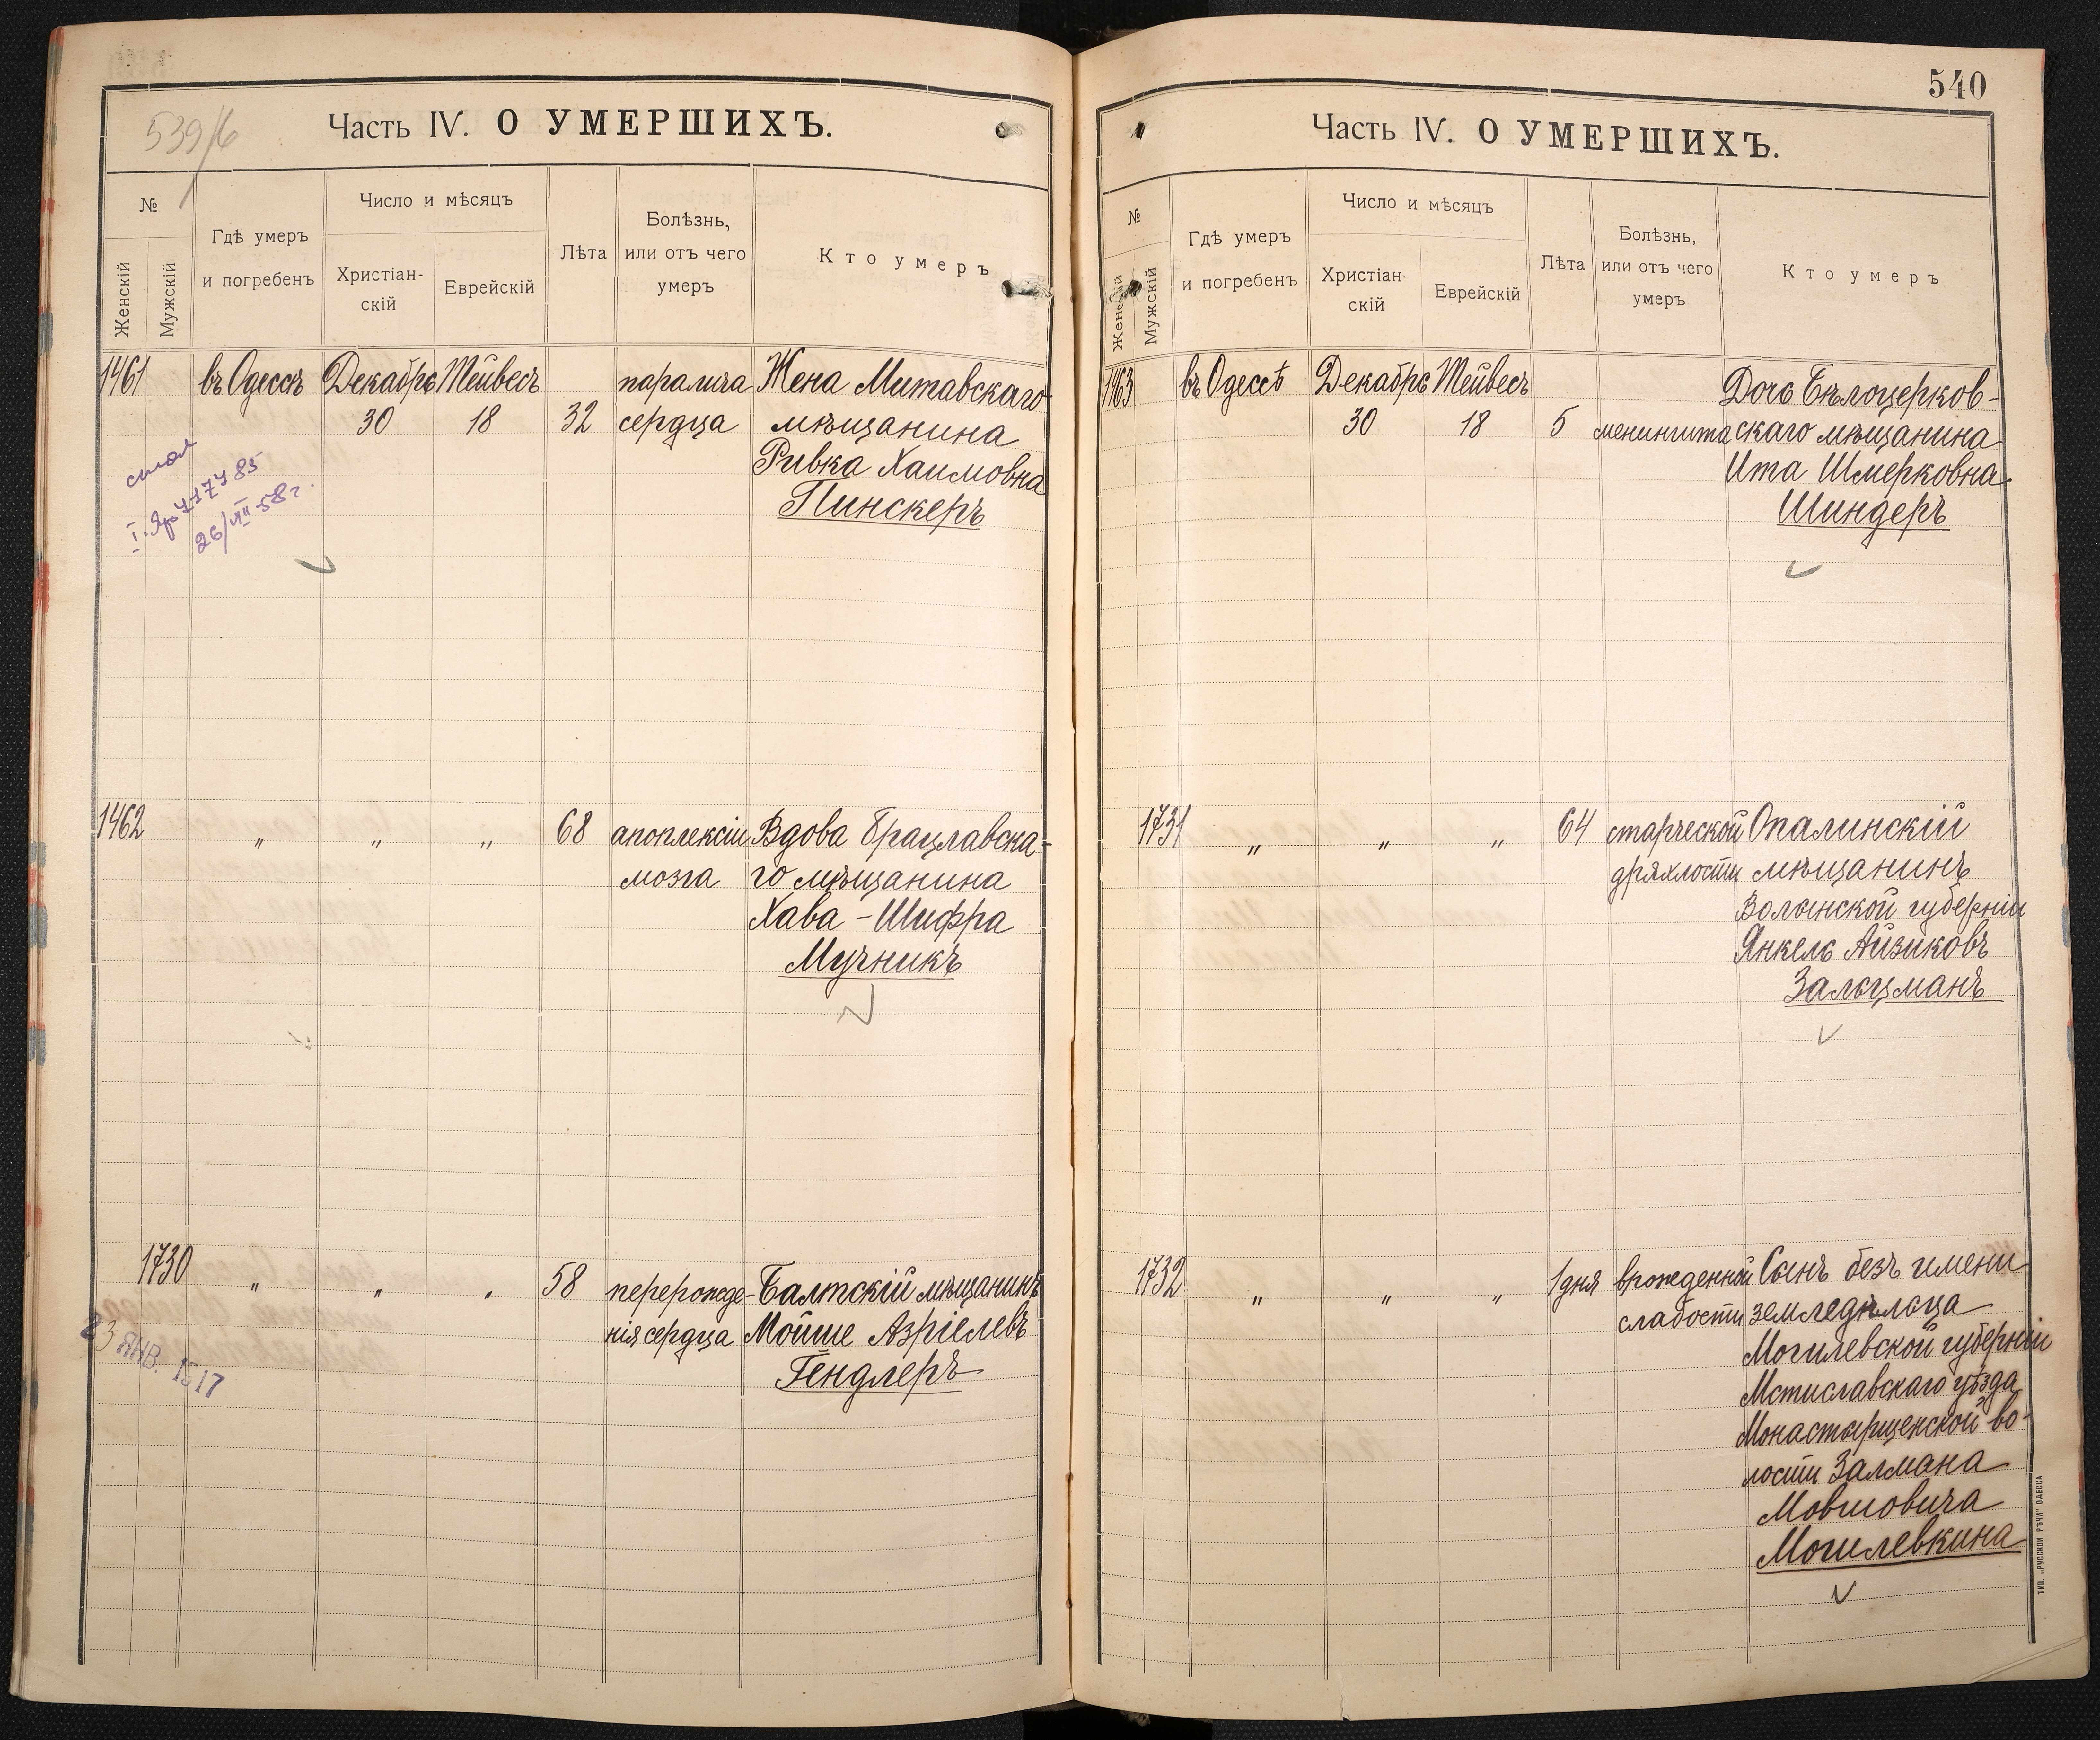 539/б
Часть IV. О УМЕРШИХЪ.
№
Женскій
Мужскій
Гдѣ умеръ
и погребенъ
Число и мѣсяцъ
Христіан-
скій
Еврейскій
Лѣта
Болѣзнь,
или отъ чего
умеръ
Кто умеръ
1461 въ Одессѣ Декабрь Тейвесъ паралича Жена Митавскаго
30 18 32 сердца мѣщанина
Ривка Хаимовна
Пинскеръ
26/VII 58 г.
1462 „ „ „ 68 апоплексіи Вдова Брацлавска-
мозга го мѣщанина
Хава-Шифра
Мучникъ
1730 „ „ „ 58 перерожде- Балтскій мѣщанинъ
нія сердца Мойше Азріелевъ
Гендлеръ
23 ЯНВ. 1917
540
Часть IV. О УМЕРШИХЪ.
№
Женскій
Мужскій
Гдѣ умеръ
и погребенъ
Число и мѣсяцъ
Христіан-
скій
Еврейскій
Лѣта
Болѣзнь,
или отъ чего
умеръ
Кто умеръ
1463 въ Одессѣ Декабрь Тейвесъ Дочь Бѣлоцерков-
30 18 5 менингита скаго мѣщанина
Ита Шмерковна
Шиндеръ
1731 „ „ „ 64 старческой Опалинскій
дряхлости мѣщанинъ
Волынской губерніи
Янкель Айзиковъ
Зальцманъ
1732 „ „ „ 1 дня врожденной Сынъ безъ имени
слабости земледѣльца
Могилевской губерніи
Мстиславскаго уѣзда
Монастырщенской во-
лости Залмана
Мовшовича
Могилевкина
ТИП. „РУССКОЙ РѢЧИ" ОДЕССА